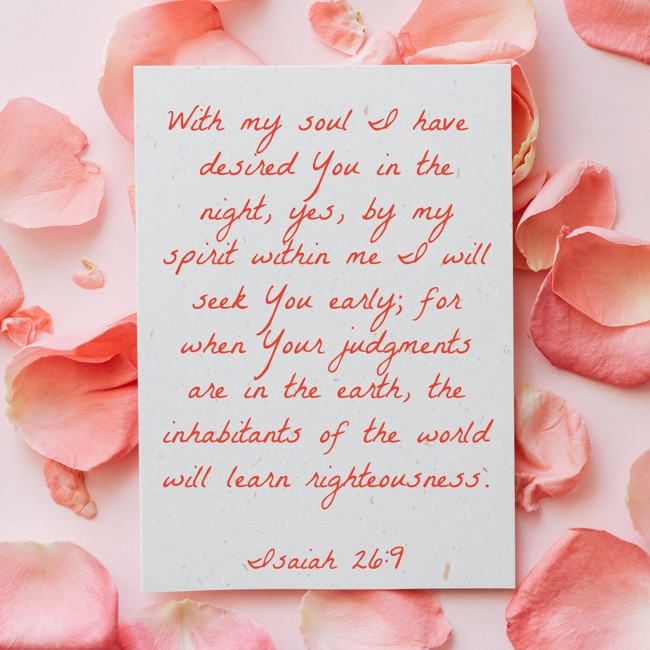 With my soul I have
desired You in the
night, yes, by my
spirit within me I will
seek You early; for
when Your judgments
are in the earth, the
inhabitants of the world
will learn righteousness.
Isaiah 26:9